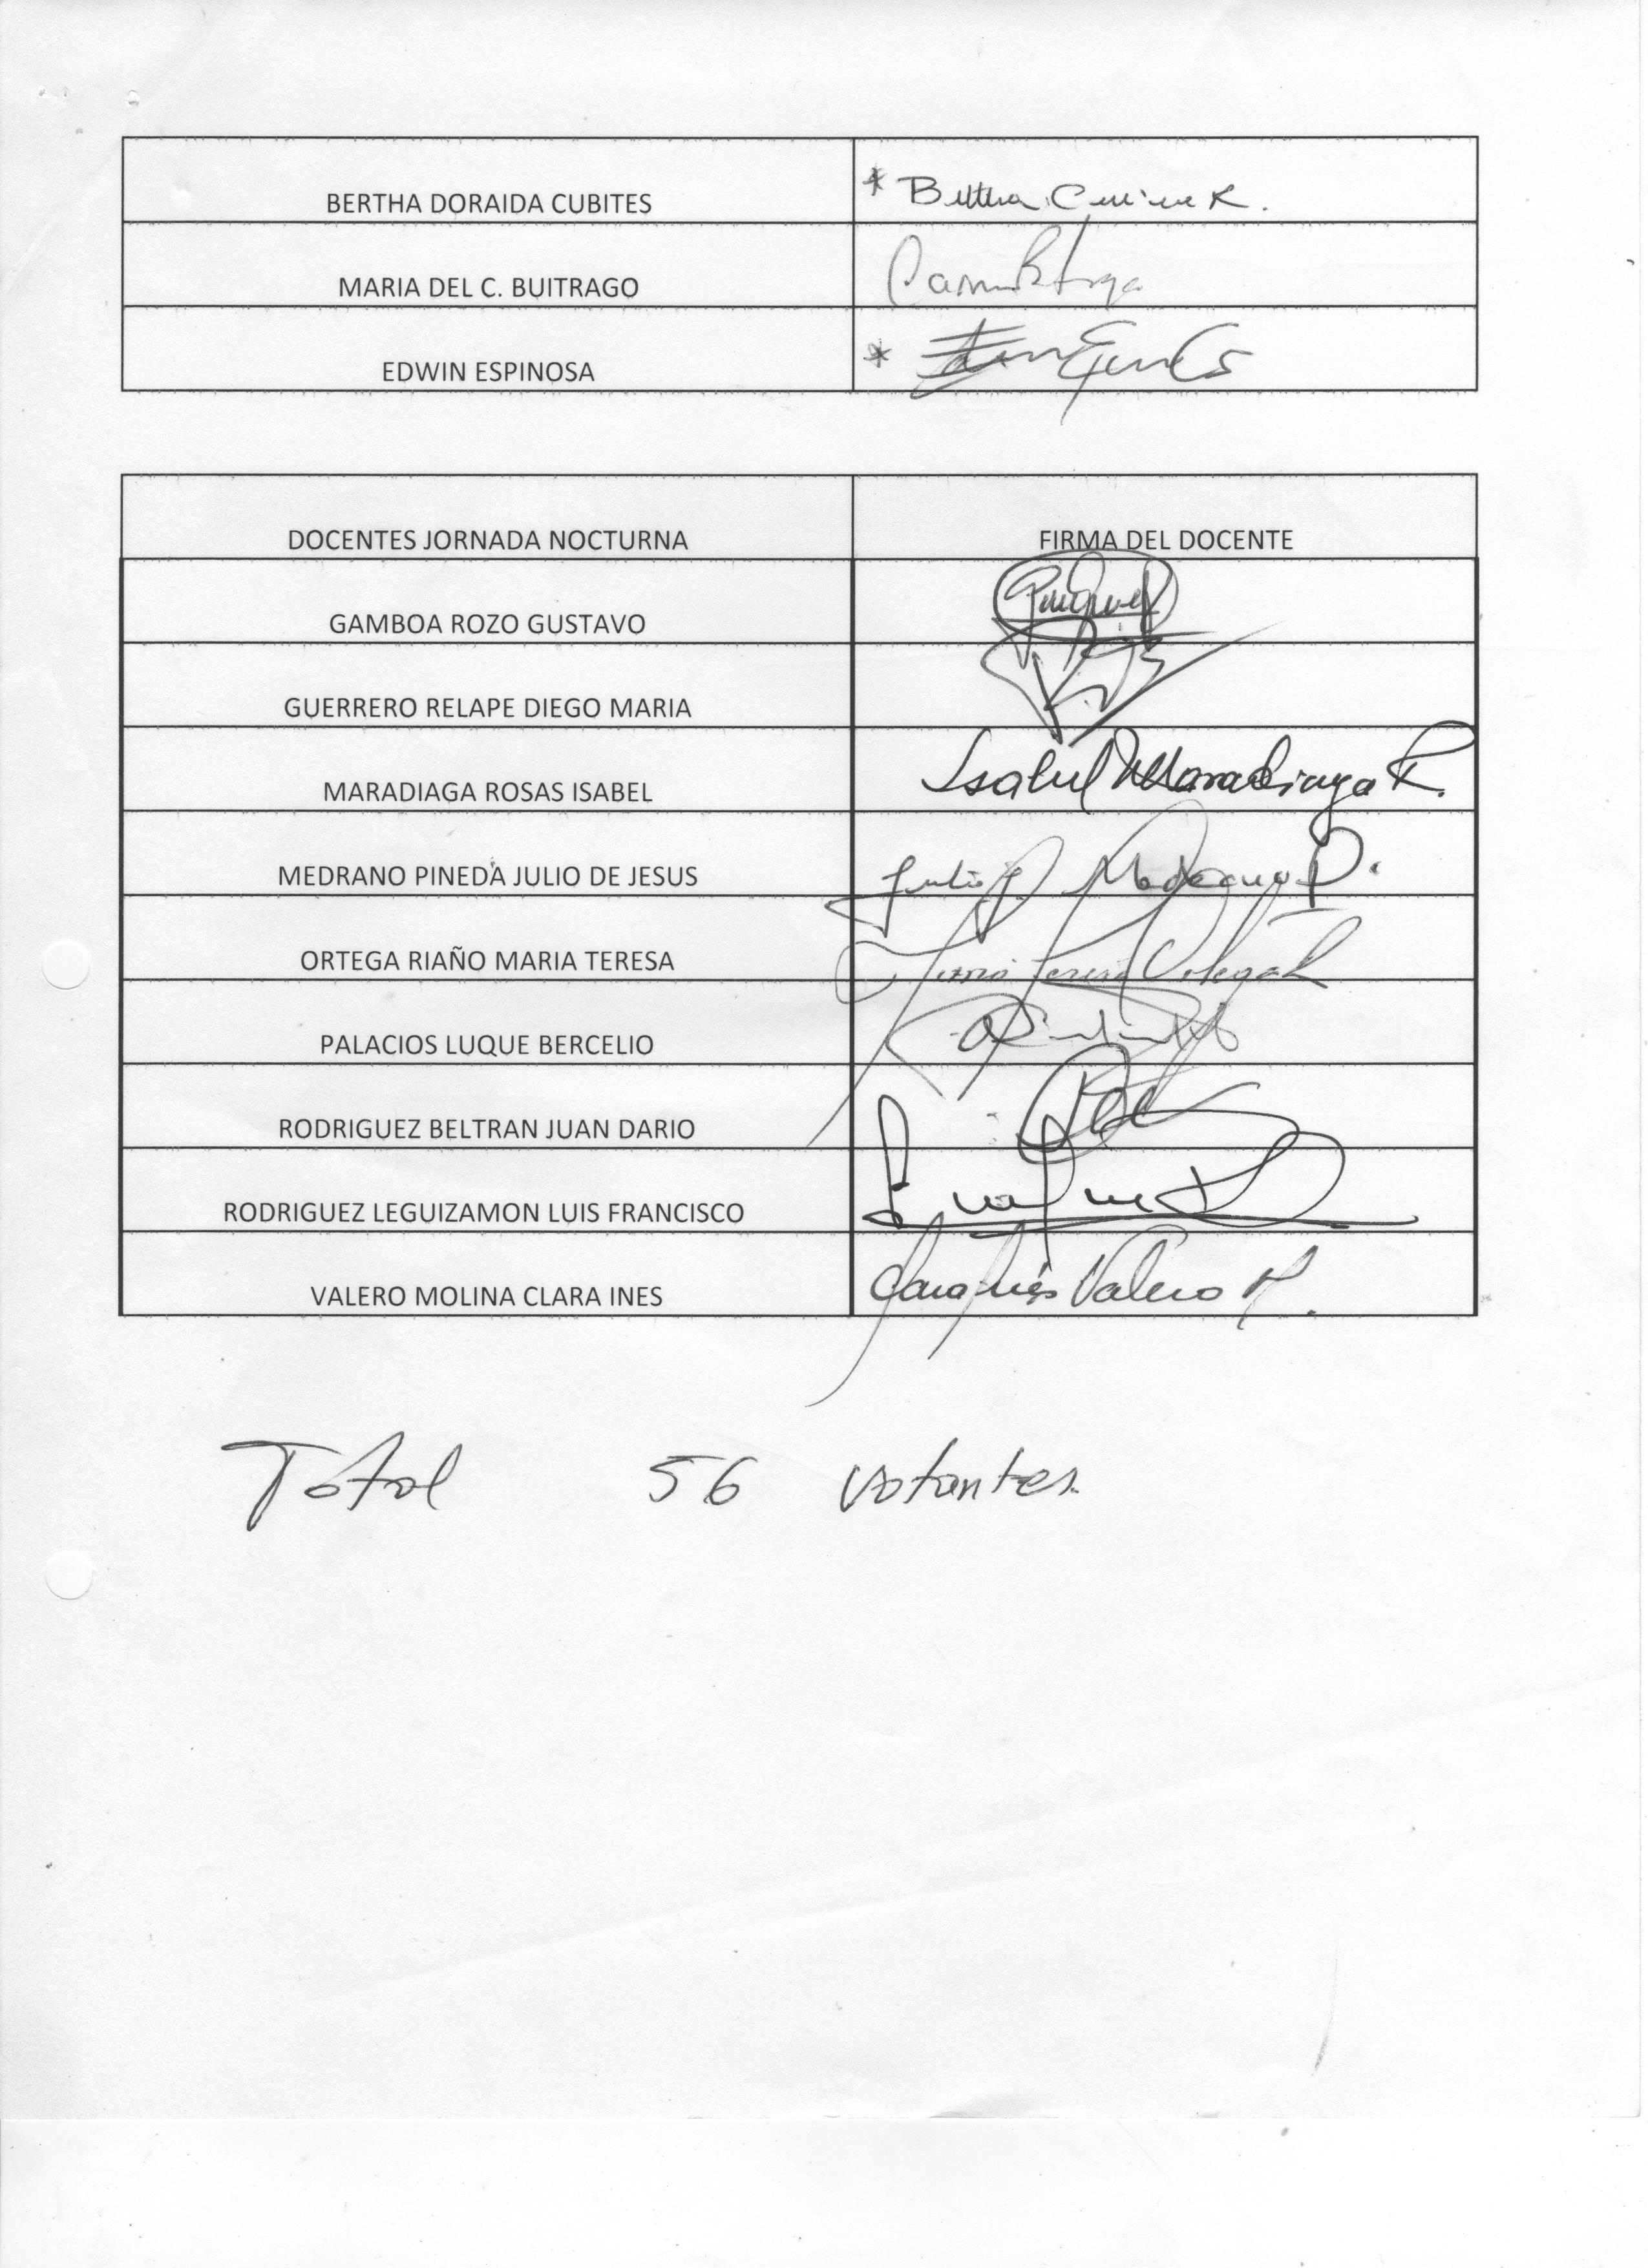 BERTHA DORAIDA CUBITES * Bertha
MARIA DEL C. BUITRAGO
EDWIN ESPINOSA *
DOCENTES JORNADA NOCTURNA FIRMA DEL DOCENTE
GAMBOA ROZO GUSTAVO
GUERRERO RELAPE DIEGO MARIA
MARADIAGA ROSAS ISABEL Isabel Maradiaga R.
MEDRANO PINEDA JULIO DE JESUS Julio J. Medrano P.
ORTEGA RIAÑO MARIA TERESA Maria Teresa Ortega R
PALACIOS LUQUE BERCELIO
RODRIGUEZ BELTRAN JUAN DARIO
RODRIGUEZ LEGUIZAMON LUIS FRANCISCO
VALERO MOLINA CLARA INES Clara Inés Valero M.
Total 56 votantes